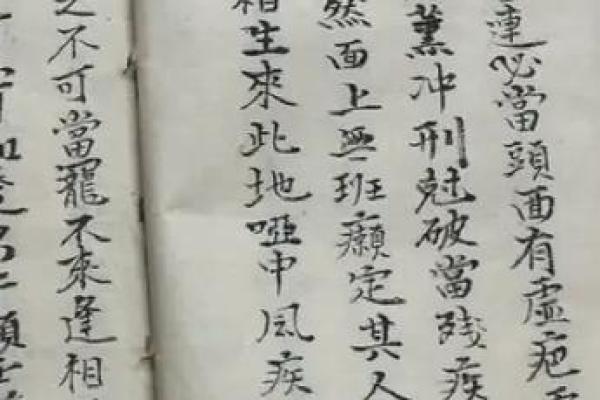 連必當頭面有虛疤
薰冲刑尅破當殘疾
然面上無班癩定其人
相生來此地啞中風疾
之不可當罷不來逢相